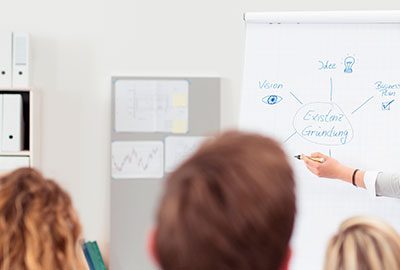 Idee
Vision
Business
Plan
Existenz
Gründung